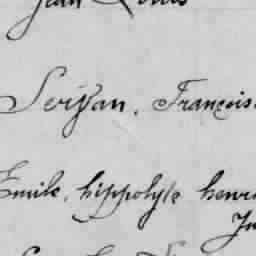 Jean Louis
Servan, François
Emile, hippolyte henri